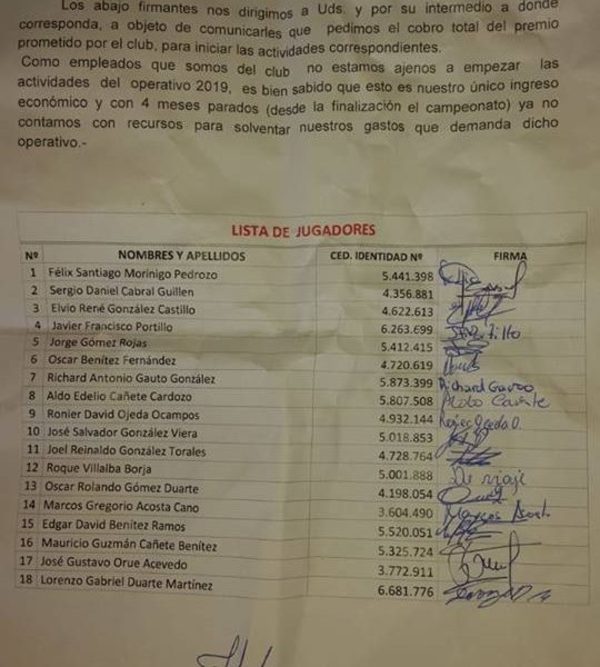 Los abajo firmantes nos dirigimos a Uds. y por su intermedio a donde
corresponda, a objeto de comunicarles que pedimos el cobro total del premio
prometido por el club, para iniciar las actividades correspondientes.
Como empleados que somos del club no estamos ajenos a empezar las
actividades del operativo 2019, es bien sabido que esto es nuestro único ingreso
económico y con 4 meses parados (desde la finalización el campeonato) ya no
contamos con recursos para solventar nuestros gastos que demanda dicho
operativo.-
LISTA DE JUGADORES
Nº NOMBRES Y APELLIDOS CED. IDENTIDAD Nº FIRMA
1 Félix Santiago Morinigo Pedrozo 5.441.398
2 Sergio Daniel Cabral Guillen 4.356.881
3 Elvio René González Castillo 4.622.613
4 Javier Francisco Portillo 6.263.699
5 Jorge Gómez Rojas 5.412.415
6 Oscar Benítez Fernández 4.720.619
7 Richard Antonio Gauto González 5.873.399 Richard Gauto
8 Aldo Edelio Cañete Cardozo 5.807.508 Aldo Cañete
9 Ronier David Ojeda Ocampos 4.932.144
10 José Salvador González Viera 5.018.853
11 Joel Reinaldo González Torales 4.728.764
12 Roque Villalba Borja 5.001.888 De viaje
13 Oscar Rolando Gómez Duarte 4.198.054
14 Marcos Gregorio Acosta Cano 3.604.490 Marcos Acosta
15 Edgar David Benítez Ramos 5.520.051
16 Mauricio Guzmán Cañete Benítez 5.325.724
17 José Gustavo Orue Acevedo 3.772.911
18 Lorenzo Gabriel Duarte Martínez 6.681.776